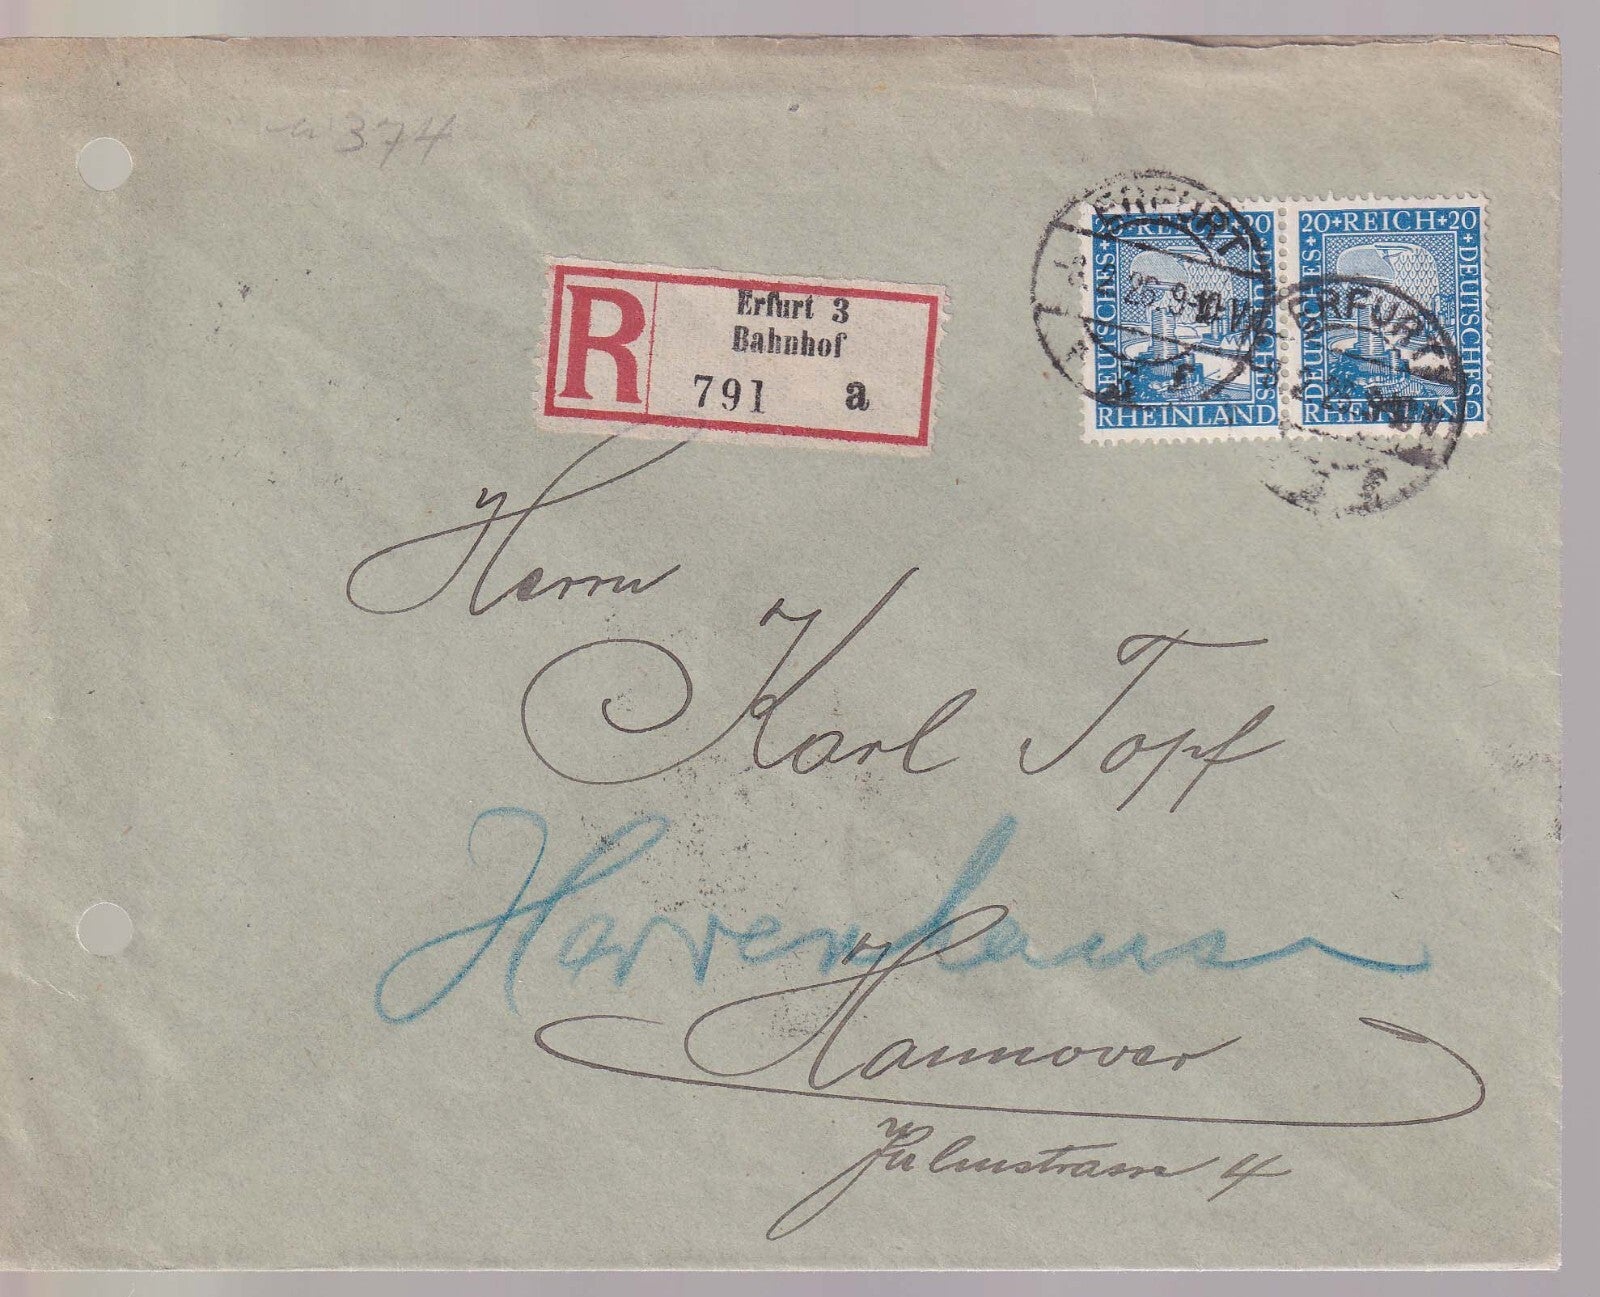 374
R
Erfurt 3
Bahnhof
791 a
20+REICH+20
DEUTSCHES+
+DEUTSCHES
RHEINLAND
20+REICH+20
DEUTSCHES+
+DEUTSCHES
RHEINLAND
ERFURT
26. 9-10 V
ERFURT
Herrn
Karl Topf
Herrenhausen
Hannover
4